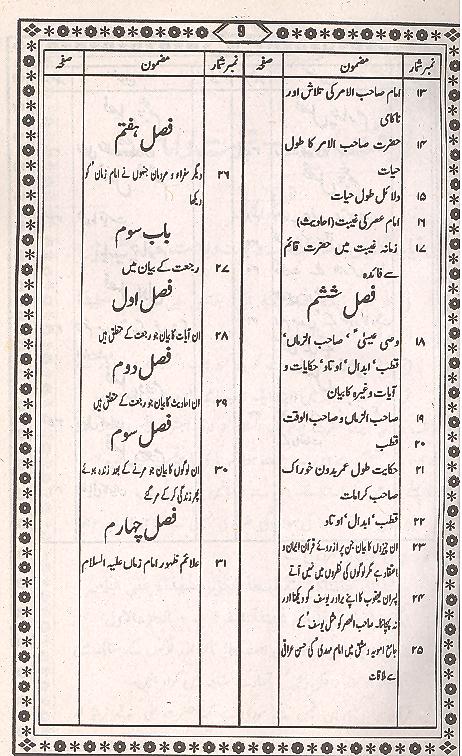 9
نمبر شمار مضمون صفحہ
۱۳ امام صاحب الامر کی تلاش اور
ناکامی
۱۴ حضرت صاحب الامر کا طول
حیات
۱۵ دلائل طول حیات
۱۶ امام عصر کی غیبت (احادیث)
۱۷ زمانہ غیبت میں حضرت قائم
سے فائدہ
فصل ششم
۱۸ وصی عیسیٰ ؑ، صاحب الزماں،
قطب، ابدال، اوتاد، حکایات و
آیات وغیرہ کا بیان
۱۹ صاحب الزماں و صاحب الوقت
۲۰ قطب
۲۱ حکایت طول عمر بدون خوراک
صاحب کرامات
۲۲ قطب، ابدال، اوتاد
۲۳ ان چیزوں کا بیان جن پر ازروئے قرآن ایمان و
اعتقاد ہے مگر لوگوں کی نظروں میں نہیں آتے
۲۴ پسران یعقوب کا اپنے برادر یوسف کو دیکھنا اور
نہ پہچاننا۔ صاحب العصر کو مثل یوسف کے
۲۵ جامع امویہ دمشق میں امام مہدی کی حسن عراقی
سے ملاقات
نمبر شمار مضمون صفحہ
فصل ہفتم
۲۶ دیگر سفراء و مردمان جنہوں نے امام زمان کو
دیکھا
باب سوم
۲۷ رجعت کے بیان میں
فصل اول
۲۸ ان آیات کا بیان جو رجعت کے متعلق ہیں
فصل دوم
۲۹ ان احادیث کا بیان جو رجعت کے متعلق ہیں
فصل سوم
۳۰ ان لوگوں کا بیان جو مرنے کے بعد زندہ ہوئے
پھر زندگی کر کے مر گئے
فصل چہارم
۳۱ علائم ظہور امام زماں علیہ السلام